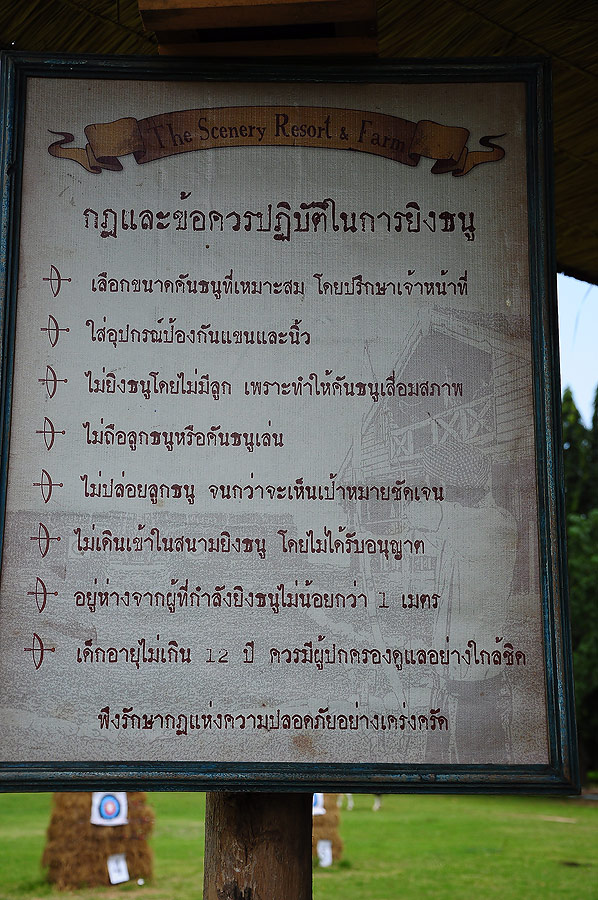 The Scenery Resort & Farm
กฎและข้อควรปฏิบัติในการยิงธนู
เลือกขนาดคันธนูที่เหมาะสม โดยปรึกษาเจ้าหน้าที่
ใส่อุปกรณ์ป้องกันแขนและนิ้ว
ไม่ยิงธนูโดยไม่มีลูก เพราะทำให้คันธนูเสื่อมสภาพ
ไม่ถือลูกธนูหรือคันธนูเล่น
ไม่ปล่อยลูกธนู จนกว่าจะเห็นเป้าหมายชัดเจน
ไม่เดินเข้าในสนามยิงธนู โดยไม่ได้รับอนุญาต
อยู่ห่างจากผู้ที่กำลังยิงธนูไม่น้อยกว่า 1 เมตร
เด็กอายุไม่เกิน 12 ปี ควรมีผู้ปกครองดูแลอย่างใกล้ชิด
พึงรักษากฎแห่งความปลอดภัยอย่างเคร่งครัด